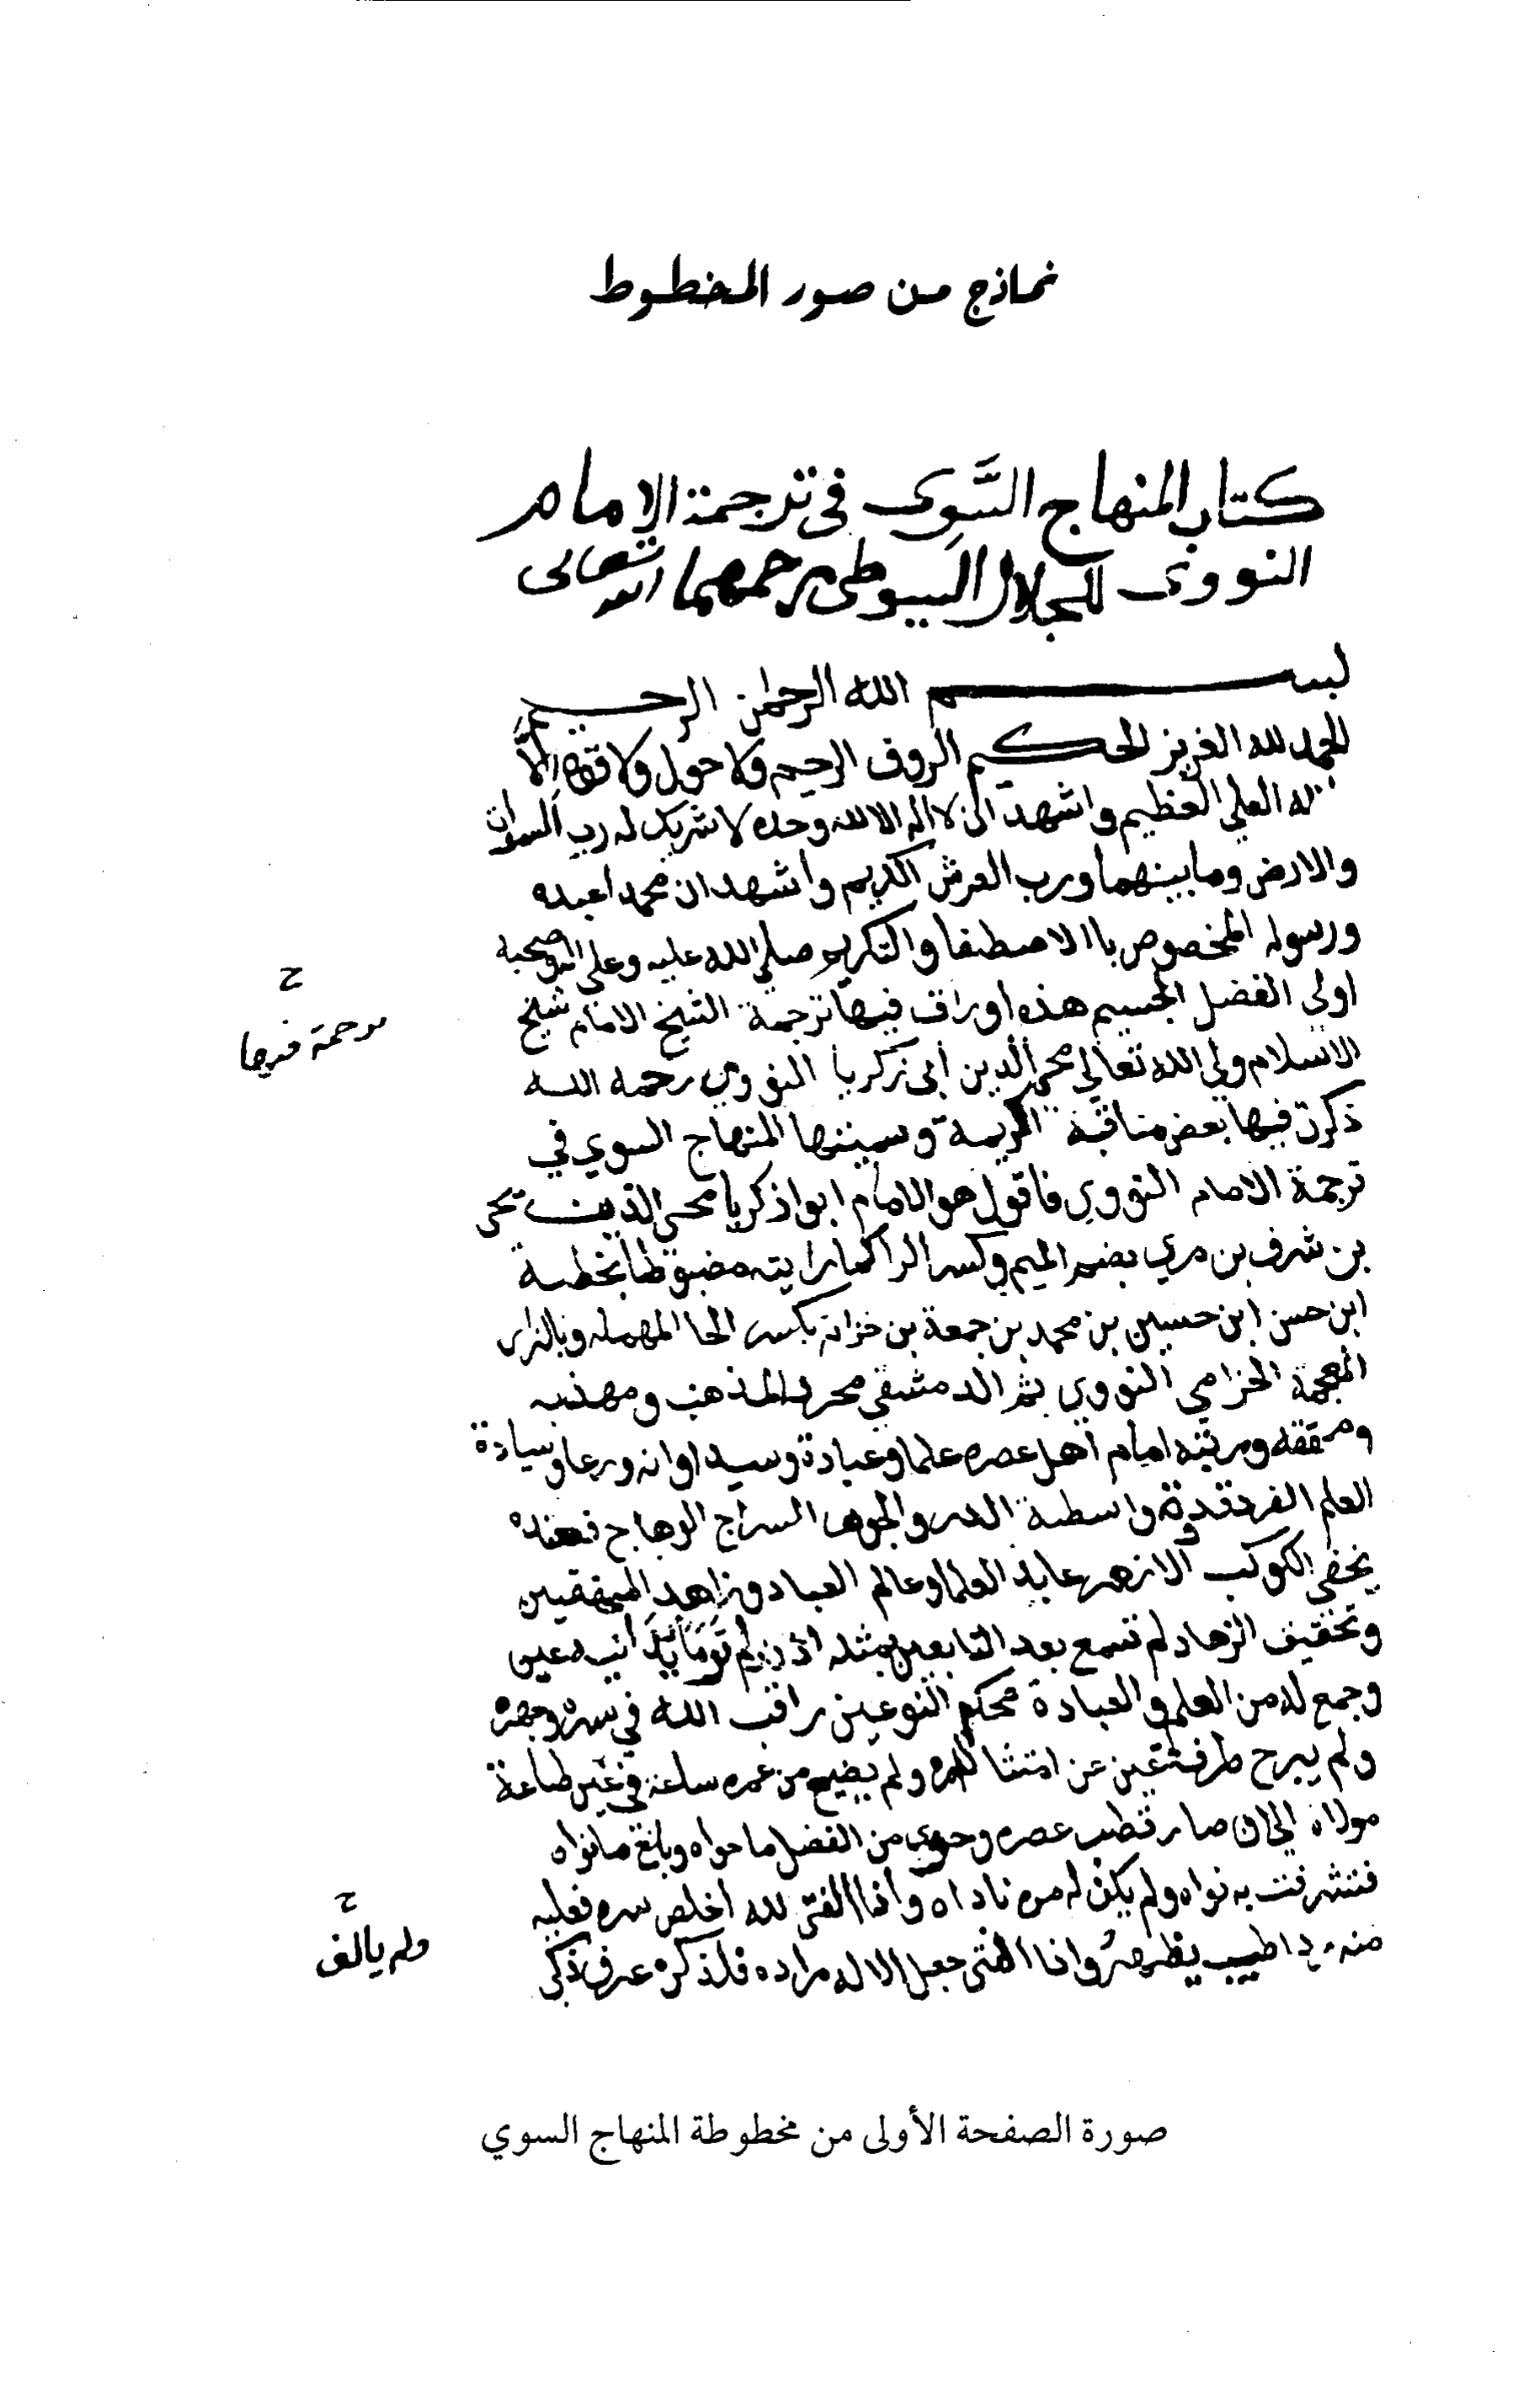 نماذج من صور المخطوط
كتاب المنهاج السَّوِى فى ترجمة الامام
النووى للجلال السيوطى رحمهما الله تعالى
بسم الله الرحمن الرحيم
الحمد لله العزيز الحكيم الروف الرحيم ولا حول ولا قوة الَّا
العلي العظيم واشهد ان لا اله الا الله وحده لا شريك له رب السموات
والارض وما بينهما ورب العرش الكريم واشهد ان محمدا عبده
ورسوله المخصوص باالاصطفا والتكريم صلي الله عليه وعلى اله وصحبه
اولي الفضل الجسيم هذه اوراق فيها ترجمة الشيخ الامام شيخ
الاسلام ولي الله تعالي محي الدين أبى زكريا النووي رحمه الله
ذكرت فيها بعض مناقبه الكريمة وسميتها المنهاج السوي في
ترجمة الامام النووي فاقول هو الامام ابوا زكريا محي الدين يحى
بن شرف بن مري بضم الميم وكسر الرا كما رايته مضبوطا بخطه
ابن حسن ابن حسين بن محمد بن جمعة بن حزام بكسر الحا المهمله وبالزاى
المعجمة الحزامي النووي ثم الدمشقي محرر المذهب ومهذبه
ومحققه ومرتبه امام اهل عصره علما وعبادة وسيد اوانه ورعا وسيادة
العلم الفرد قدوة واسطة الدر والجوهر السراج الوهاج فعنده
يخفى الكوكب الازهر عابد العلما وعالم العباد وزاهد المحققين
وتحقيق الزهاد لم تسمع بعد التابعين بمثله اذن ولم عين
وجمع له من العلم والعبادة محكم النوعين راقب الله في سره وجهره
ولم يبرح طرفة عين عن امتثال امره ولم يضيع من عمره ساعة في غير طاعة
مولاه الي ان صار قطب عصره وحوى من الفضل ما حواه وبلغ ما نواه
فتشرفت به نواه ولم يكن له من ناداه واذا الفتى لله اخلص سره فعليه
منه طيب يظهر واذا الفتى جعل الاله مراده فلذكره عرف ذكى
ح
ترجمة فيها
ح
ولم يالف
صورة الصفحة الأولى من مخطوطة المنهاج السوي